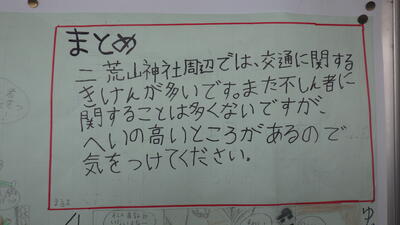 まとめ
二荒山神社周辺では、交通に関する
きけんが多いです。また不しん者に
関することは多くないですが、
へいの高いところがあるので
気をつけてください。